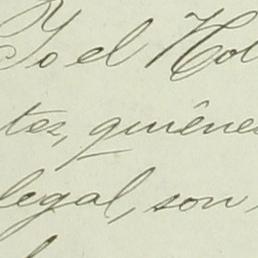 Yoel Hol
tes, quiénes
legal, son,